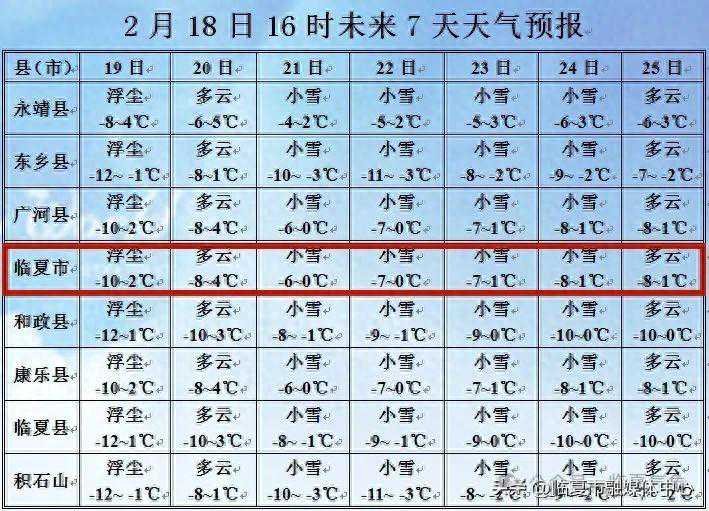 2月18日16时未来7天天气预报
县（市） 19日 20日 21日 22日 23日 24日 25日
永靖县 浮尘 多云 小雪 小雪 小雪 小雪 多云
-8~4℃ -6~5℃ -4~2℃ -5~2℃ -5~3℃ -6~3℃ -6~3℃
东乡县 浮尘 多云 小雪 小雪 小雪 小雪 多云
-12~ -1℃ -8~1℃ -10~ -3℃ -11~ -3℃ -8~ -2℃ -9~ -2℃ -7~ -2℃
广河县 浮尘 多云 小雪 小雪 小雪 小雪 多云
-10~2℃ -8~4℃ -6~0℃ -7~0℃ -7~1℃ -8~1℃ -8~1℃
临夏市 浮尘 多云 小雪 小雪 小雪 小雪 多云
-10~2℃ -8~4℃ -6~0℃ -7~0℃ -7~1℃ -8~1℃ -8~1℃
和政县 浮尘 多云 小雪 小雪 小雪 小雪 多云
-12~1℃ -10~3℃ -8~ -1℃ -9~ -1℃ -9~0℃ -10~0℃ -10~0℃
康乐县 浮尘 多云 小雪 小雪 小雪 小雪 多云
-10~2℃ -8~4℃ -6~0℃ -7~0℃ -7~1℃ -8~1℃ -8~1℃
临夏县 浮尘 多云 小雪 小雪 小雪 小雪 多云
-12~1℃ -10~3℃ -8~ -1℃ -9~ -1℃ -9~0℃ -10~0℃ -10~0℃
积石山 浮尘 多云 小雪 小雪 小雪
-12~ -1℃ -8~1℃ -10~ -3℃ -11~ -3℃
头条 @临夏市融媒体中心